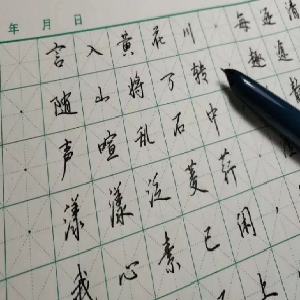 年 月 日
言入黄花川，每逐清
随山将万转 趣途
声喧乱石中
漾漾泛菱荇
我心素已闲，
上